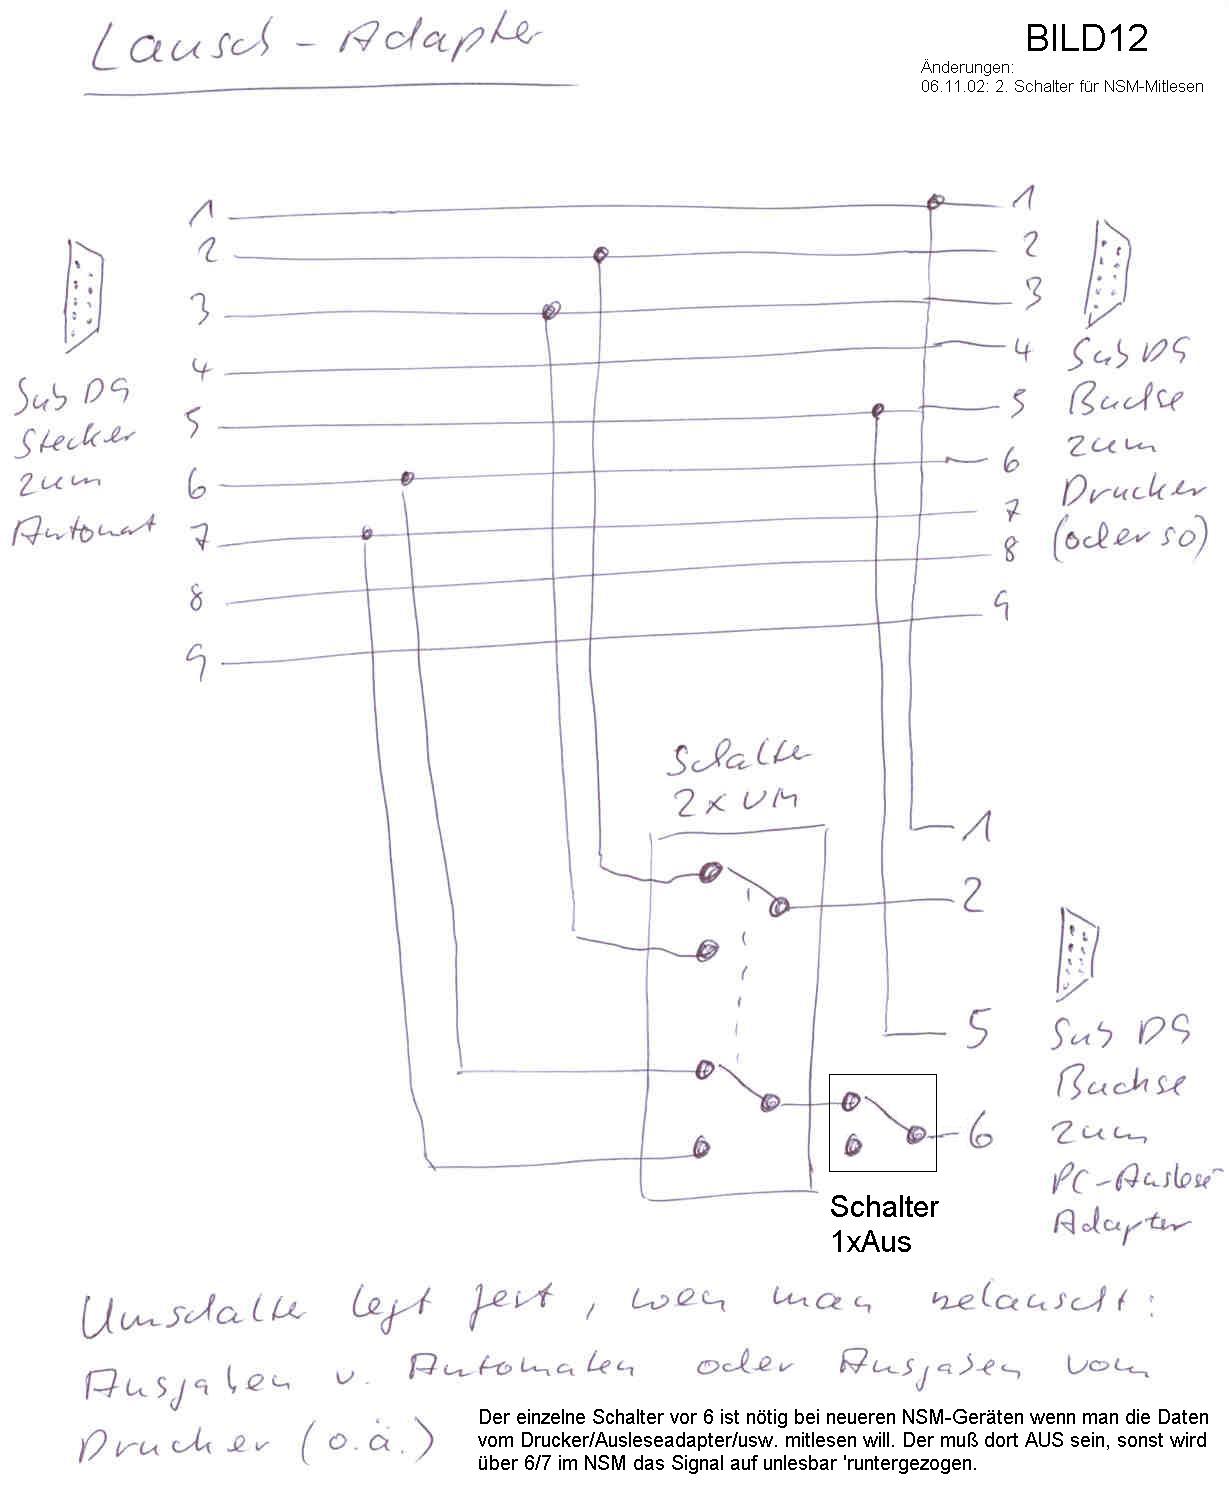 Lausch-Adapter
BILD12
Änderungen:
06.11.02: 2. Schalter für NSM-Mitlesen
1
2
3
4
5
6
7
8
9
Sub D9
Stecker
zum
Automat
1
2
3
4
5
6
7
8
9
Sub D9
Buchse
zum
Drucker
(oder so)
Schalter
2 x UM
1
2
5
6
Sub D9
Buchse
zum
PC-Auslese-
Adapter
Schalter
1xAus
Umschalter legt fest, wen man belauscht:
Ausgaben v. Automaten oder Ausgaben vom
Drucker (o.ä.)
Der einzelne Schalter vor 6 ist nötig bei neueren NSM-Geräten wenn man die Daten
vom Drucker/Ausleseadapter/usw. mitlesen will. Der muß dort AUS sein, sonst wird
über 6/7 im NSM das Signal auf unlesbar 'runtergezogen.